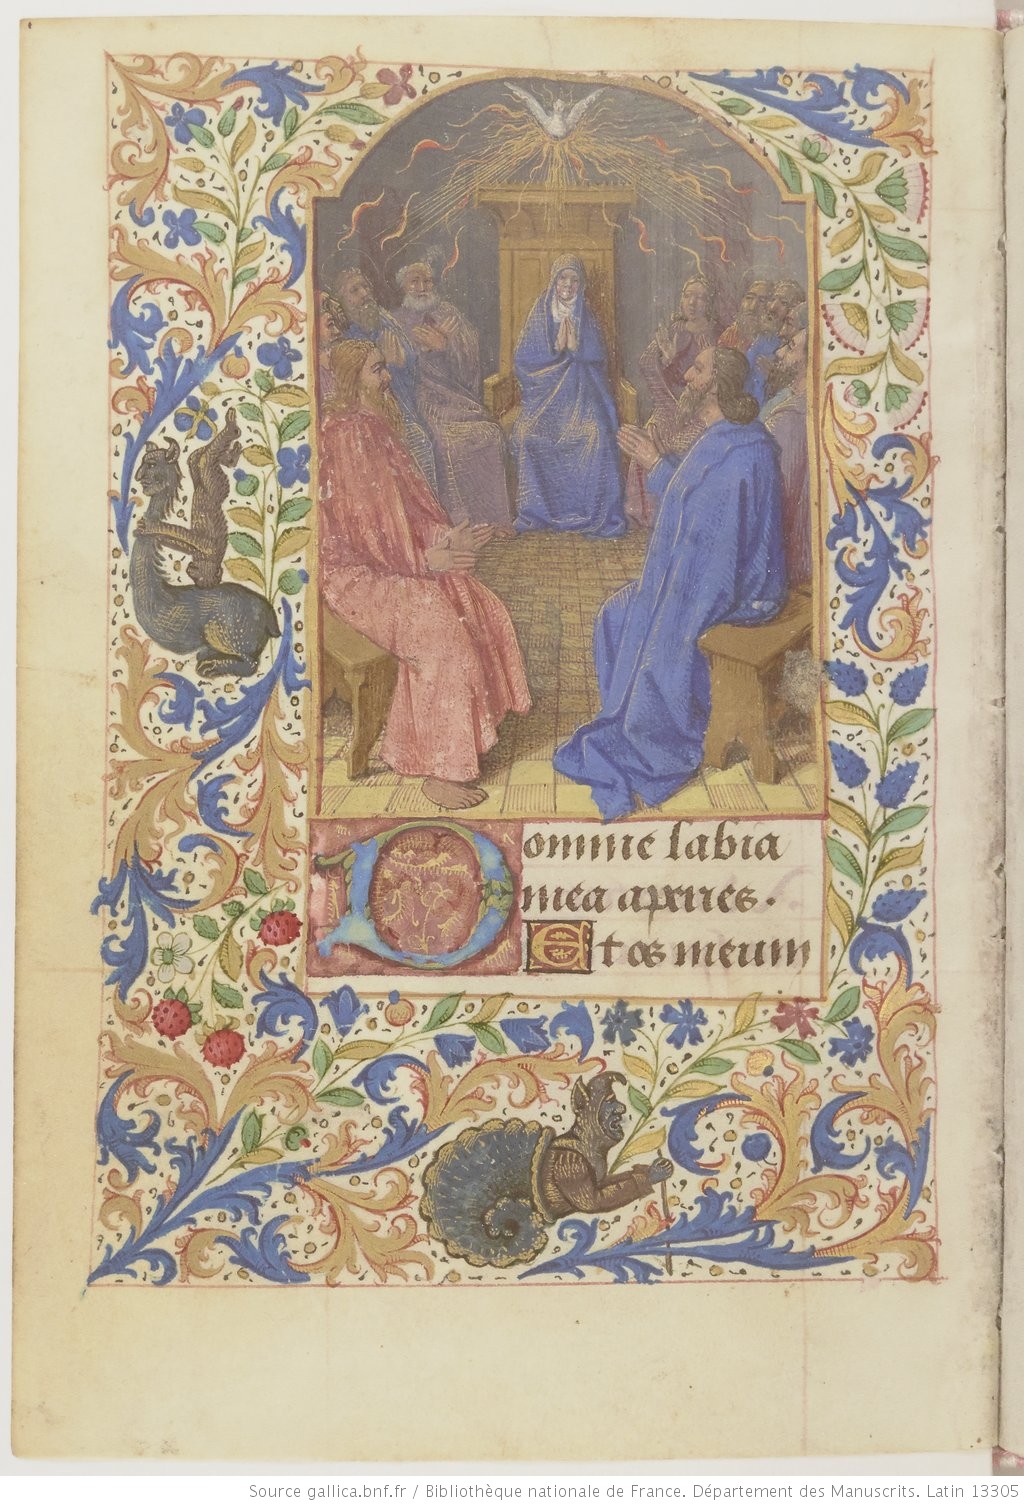 Domine labia
mea aperies.
Et os meum
Source gallica.bnf.fr / Bibliothèque nationale de France. Département des Manuscrits. Latin 13305